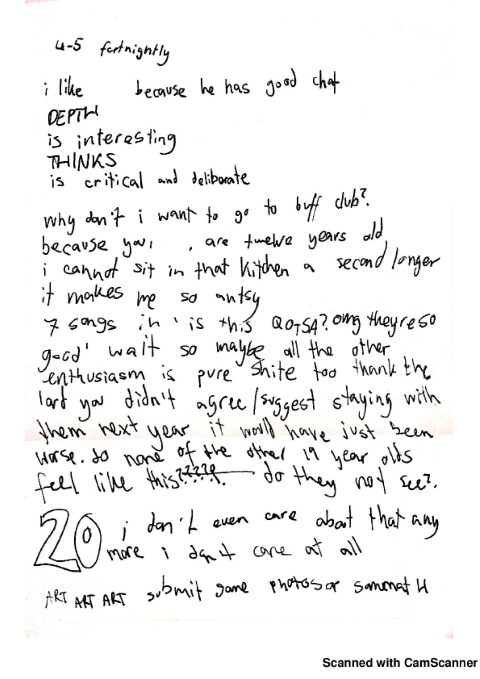 4-5 fortnightly
i like because he has good chat
DEPTH
is interesting
THINKS
is critical and deliberate
why don't i want to go to buff club?
because you, , are twelve years old
i cannot sit in that kitchen a second longer
it makes me so antsy
7 songs in 'is this QOTSA? omg theyre so
good' wait so maybe all the other
enthusiasm is pure shite too thank the
lord you didn't agree/suggest staying with
them next year it would have just been
worse. do none of the other 19 year olds
feel like this????? do they not see?.
20 i don't even care about that any
more i don't care at all
ART ART ART submit some photos or summat
Scanned with CamScanner